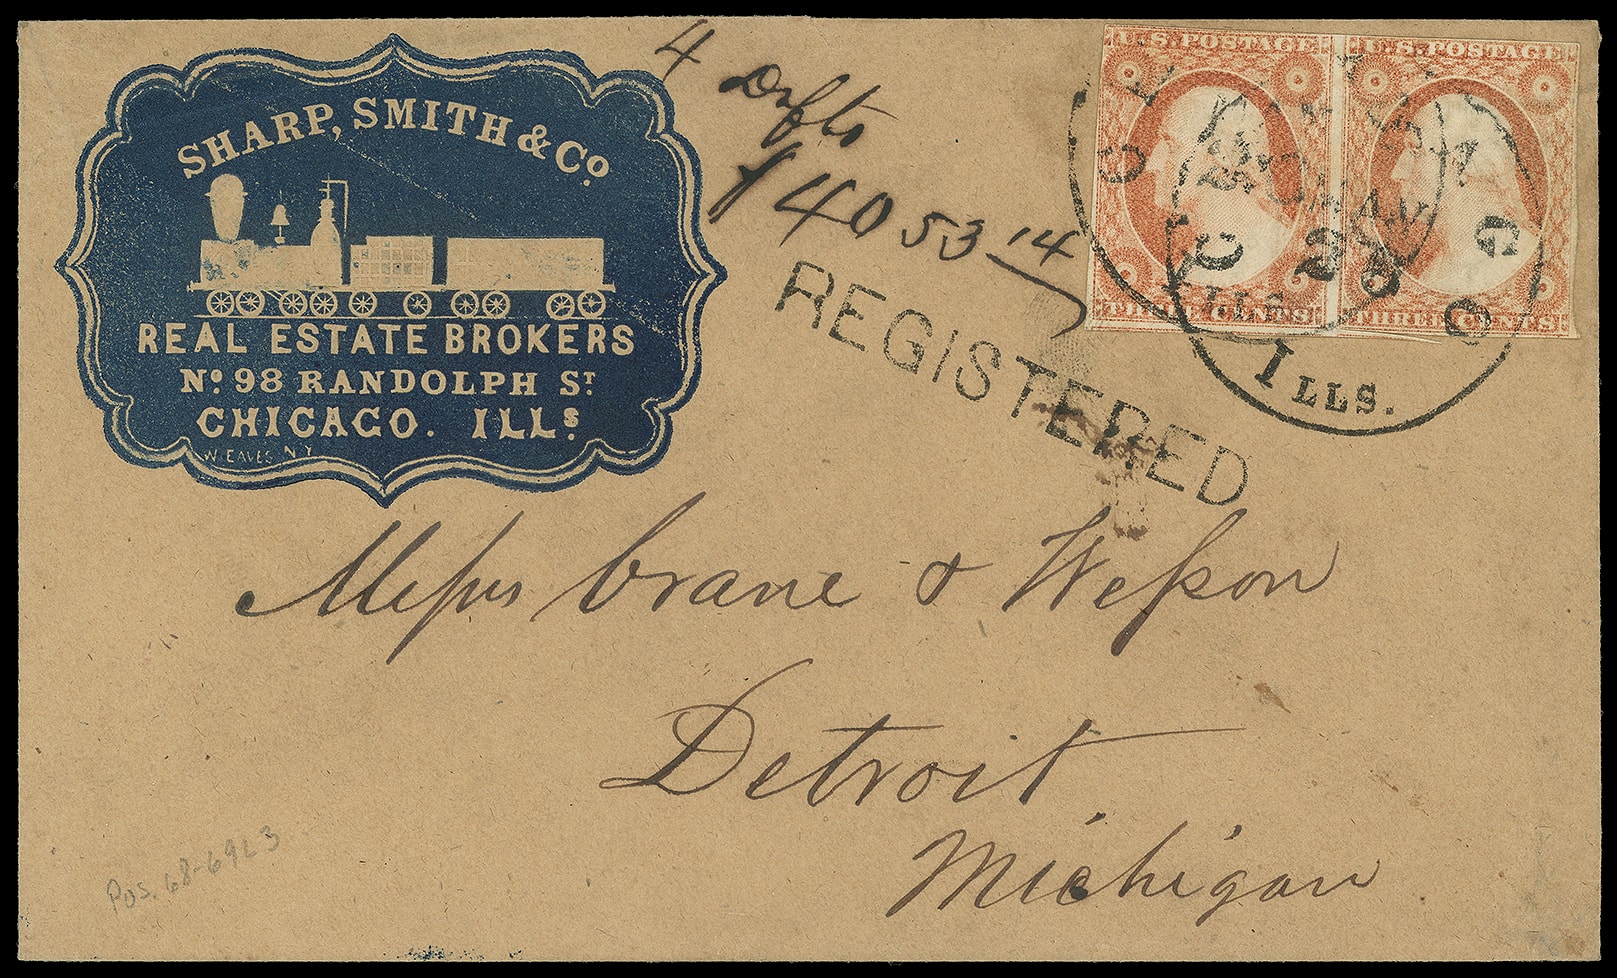 SHARP, SMITH & Co.
REAL ESTATE BROKERS
No. 98 RANDOLPH ST
CHICAGO. ILLs.
W. EAVES N.Y
4 Drfts
$14053 14
REGISTERED
U.S. POSTAGE
THREE CENTS
U.S. POSTAGE
THREE CENTS
ILLS.
Messrs Crane & Wesson
Detroit
Michigan
Pos. 68-69L3